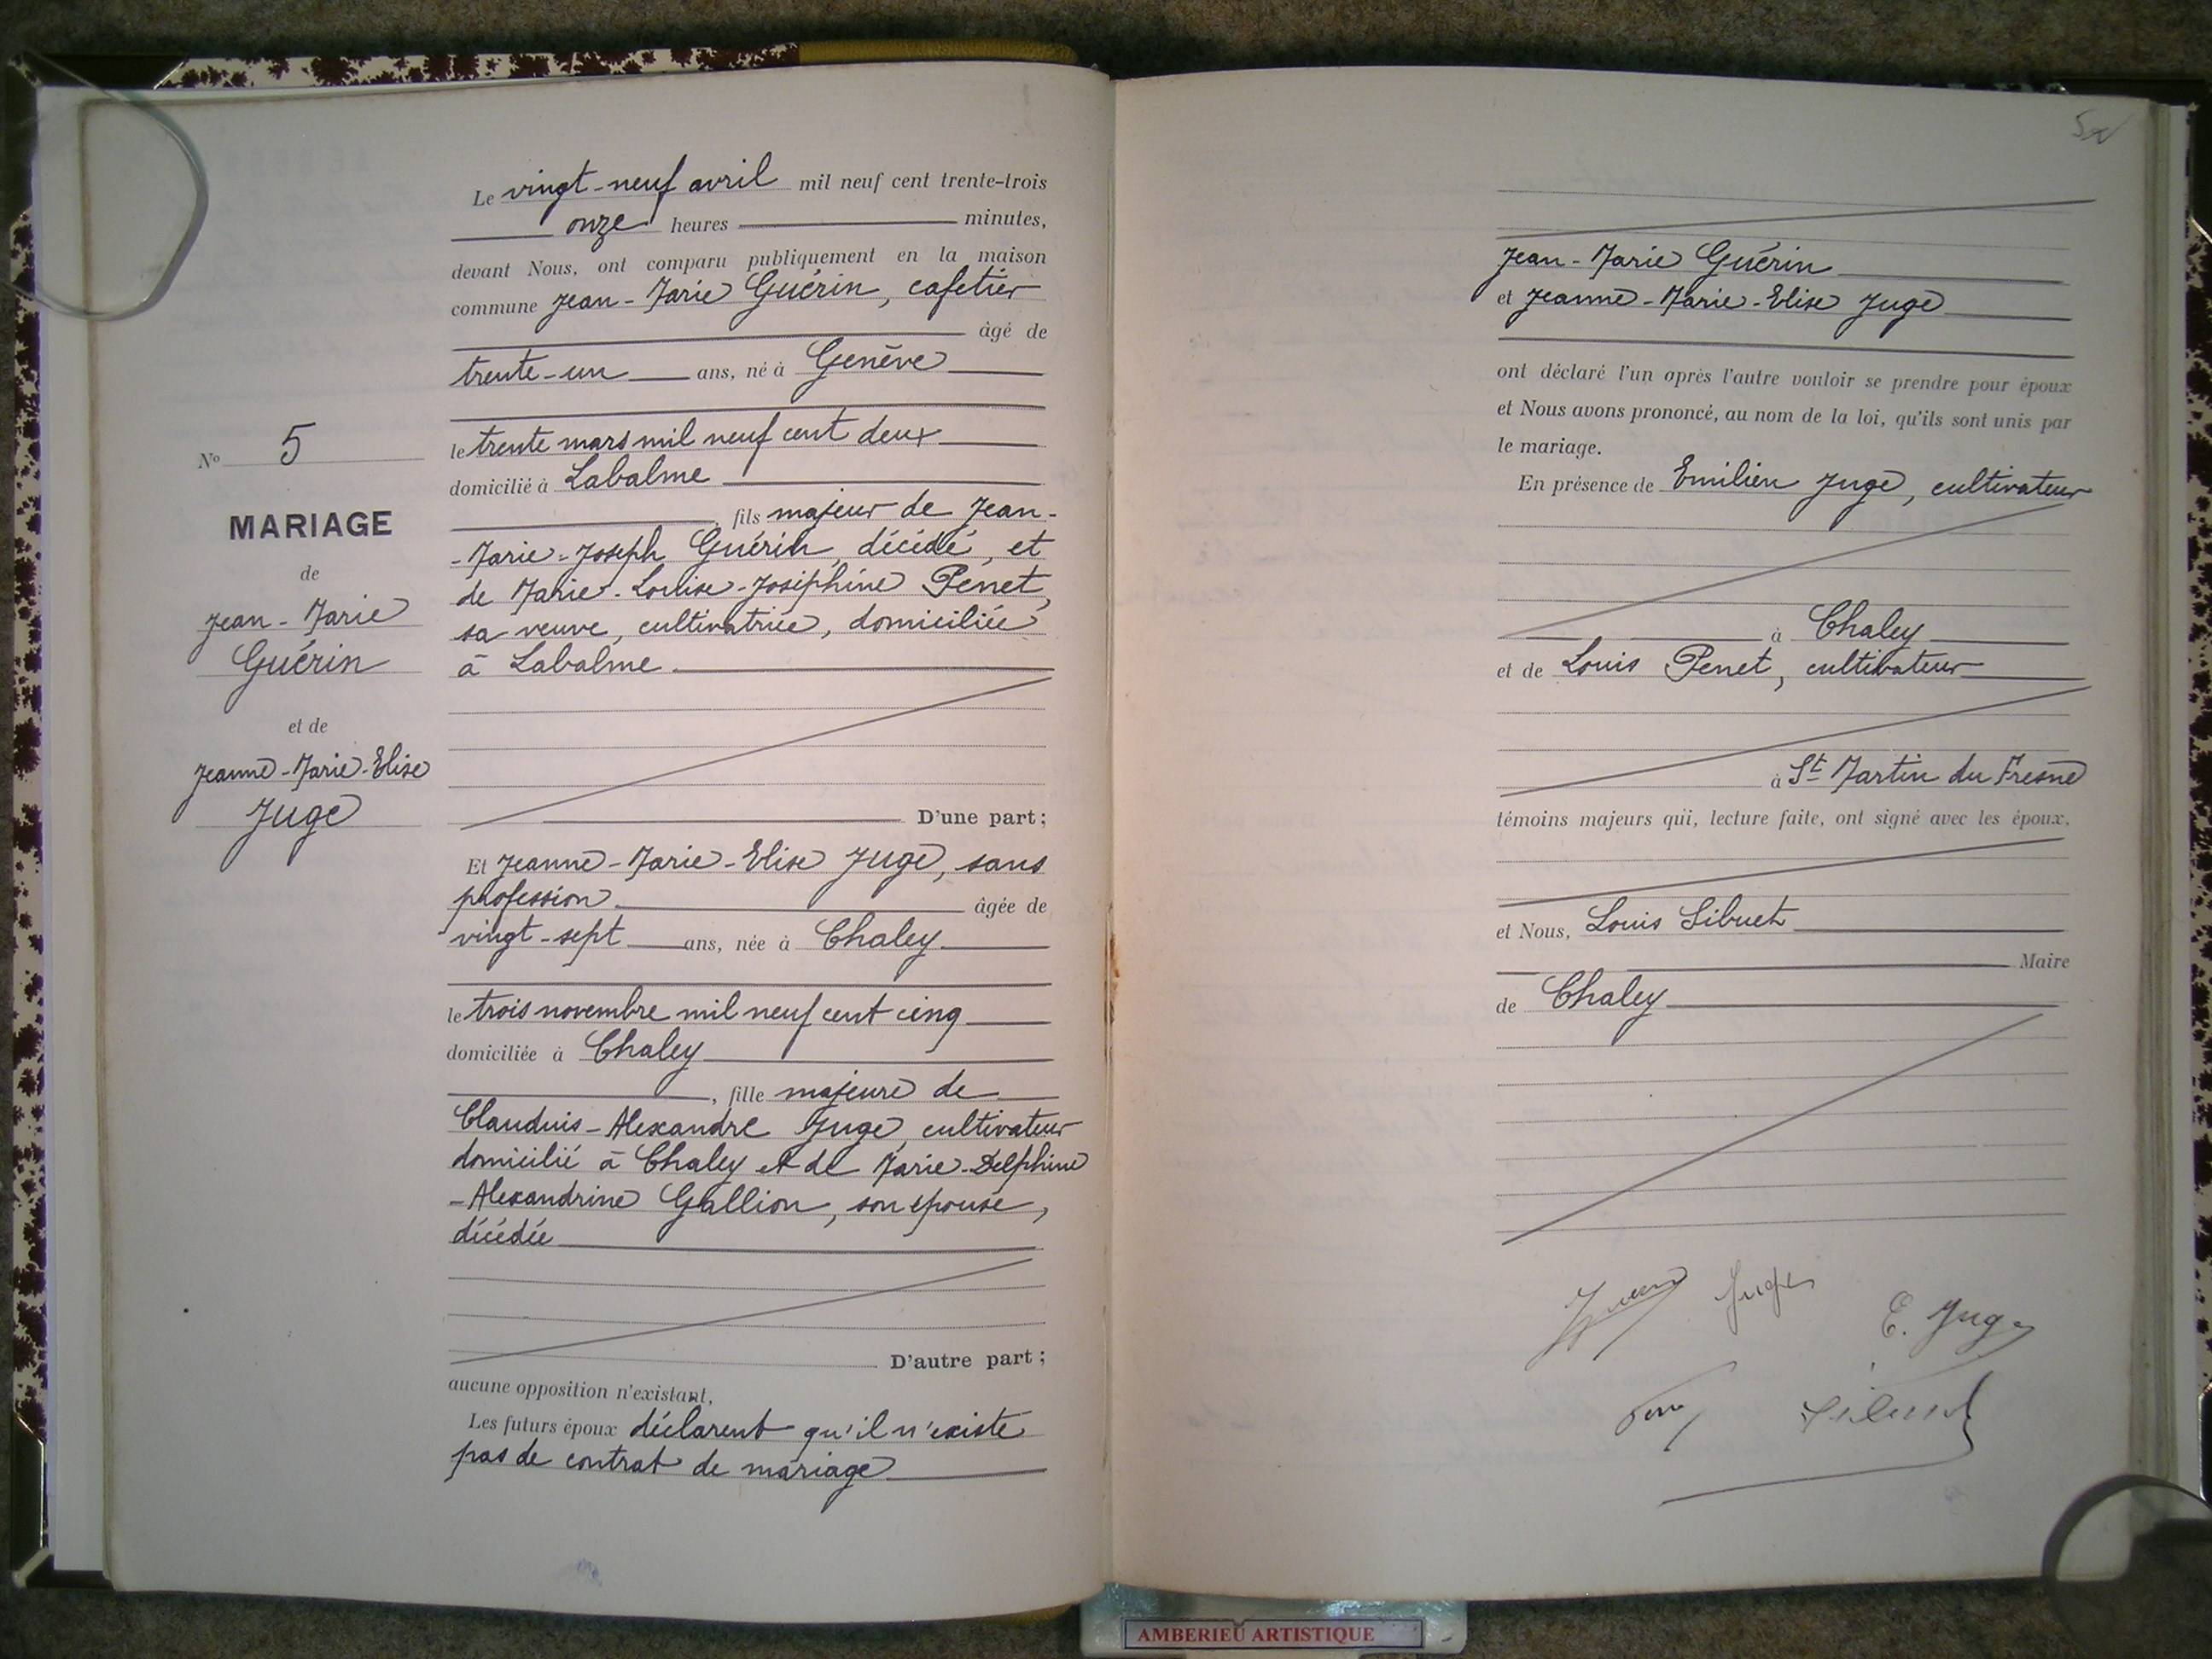 Le vingt-neuf avril mil neuf cent trente-trois
onze heures minutes,
devant Nous, ont comparu publiquement en la maison
commune Jean-Marie Guérin, cafetier
âgé de
trente-un ans, né à Genève
le trente mars mil neuf cent deux
domicilié à Labalme
, fils majeur de Jean-
-Marie-Joseph Guérin, décédé, et
de Marie-Louise-Joséphine Penet,
sa veuve, cultivatrice, domiciliée
à Labalme.
D'une part;
Et Jeanne-Marie-Elise Juge, sans
profession. âgée de
vingt-sept ans, née à Chaley
le trois novembre mil neuf cent cinq
domiciliée à Chaley
, fille majeure de
Claudius-Alexandre Juge, cultivateur
domicilié à Chaley et de Marie-Delphine
-Alexandrine Gallion, son épouse,
décédée
D'autre part;
aucune opposition n'existant,
Les futurs époux déclarent qu'il n'existe
pas de contrat de mariage
No 5
MARIAGE
de
Jean-Marie
Guérin
et de
Jeanne-Marie-Elise
Juge
Jean-Marie Guérin
et Jeanne-Marie-Elise Juge
ont déclaré l'un après l'autre vouloir se prendre pour époux
et Nous avons prononcé, au nom de la loi, qu'ils sont unis par
le mariage.
En présence de Emilien Juge, cultivateur
à Chaley
et de Louis Penet, cultivateur
à St Martin du Fresne
témoins majeurs qui, lecture faite, ont signé avec les époux,
et Nous, Louis Sibuet
Maire
de Chaley
Juge
E. Juge
AMBERIEU ARTISTIQUE